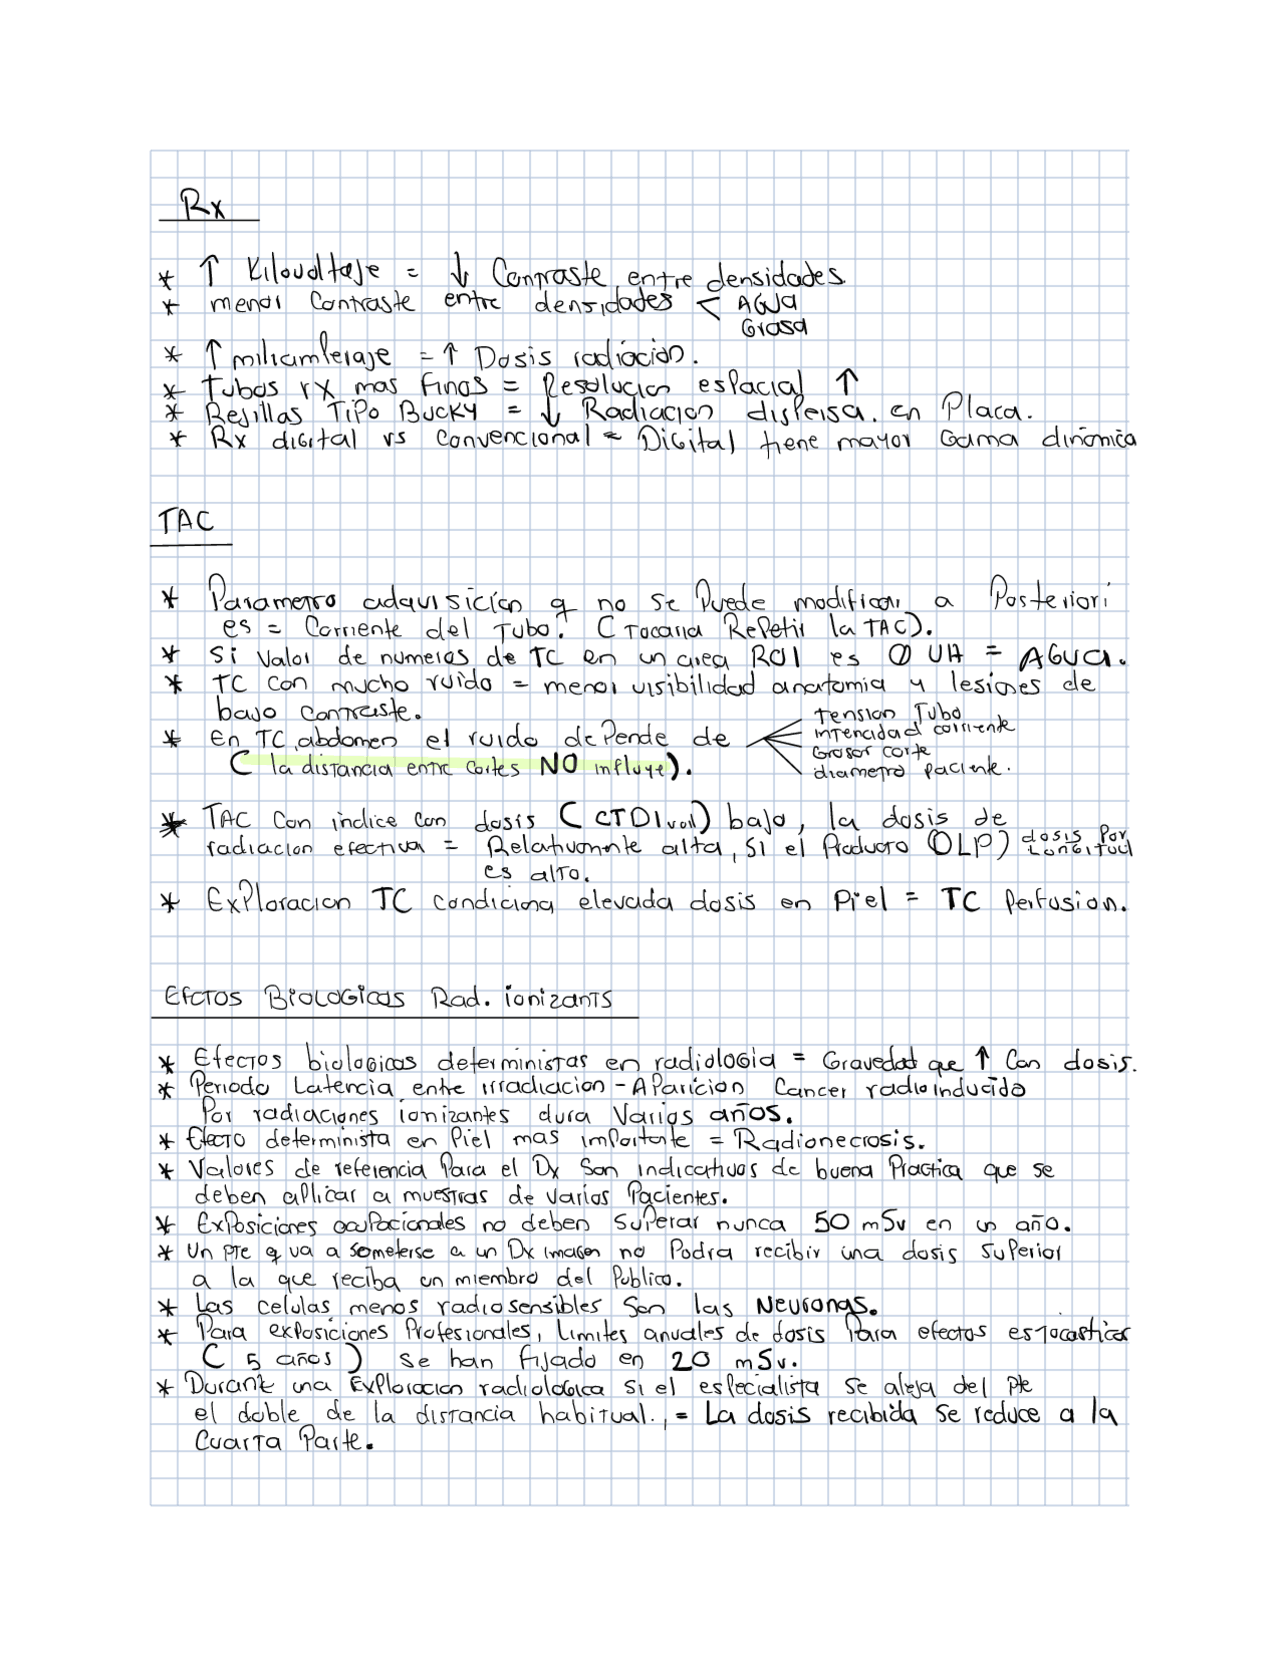 Rx
* ↑ Kilovoltaje = ↓ Contraste entre densidades
* menor Contraste entre densidades < AGUA
Grasa
* ↑ miliamperaje = ↑ Dosis radiación.
* Tubos rx mas finos = Resolucion espacial ↑
* Rejillas Tipo Bucky = ↓ Radiacion dispersa. en Placa.
* Rx digital vs Convencional = Digital tiene mayor Gama dinámica
TAC
* Parametro adquisición q no se Puede modificar a Posteriori
es = Corriente del Tubo. (Tocaria Repetir la TAC).
* Si Valor de numeros de TC en un area ROI es 0 UH = AGUA.
* TC con mucho ruido = menor visibilidad anatomia y lesiones de
bajo contraste.
* en TC abdomen el ruido dePende de
tension Tubo
intencidad corriente
Grosor corte
diametro paciente.
( la distancia entre cortes NO influye).
* TAC Con indice con dosis (CTDIvol) bajo, la dosis de
radiacion efectiva = Relativamente alta, si el Producto (DLP) dosis Por Longitud
es alto.
* ExPloracion TC condiciona elevada dosis en Piel = TC Perfusion.
Efctos Biologicos Rad. ionizants
* Efectos biologicos deterministas en radiologia = Gravedad que ↑ Con dosis.
* Periodo Latencia entre irradiacion - Aparicion Cancer radioinducido
Por radiaciones ionizantes dura Varios años.
* Efecto determinista en Piel mas importante = Radionecrosis.
* Valores de referencia Para el Dx Son indicativos de buena Practica que se
deben aplicar a muestras de Varios Pacientes.
* Exposiciones ocupacionales no deben Superar nunca 50 mSv en un año.
* Un pte q va a someterse a un Dx imagen no Podra recibir una dosis Superior
a la que reciba un miembro del Publico.
* Las celulas menos radiosensibles Son las Neuronas.
* Para exposiciones Profesionales, limites anuales de dosis Para efectos estocasticos
( 5 años ) se han fijado en 20 mSv.
* Durante una Exploracion radiológica si el especialista se aleja del pte
el doble de la distancia habitual., = La dosis recibida se reduce a la
Cuarta Parte.